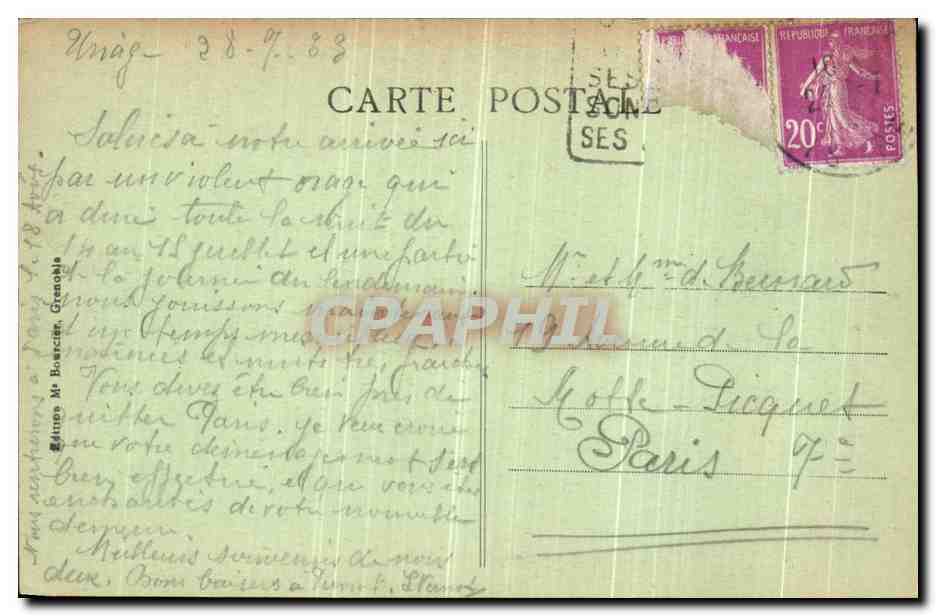 Uriage 28-7-33
CARTE POSTALE
SES
SON
SES
FRANÇAISE
RÉPUBLIQUE FRANÇAISE
20c
POSTES
Salués à notre arrivée ici
par un violent orage qui
a duré toute la nuit du
14 au 15 juillet et une partie
de la journée du lendemain
nous jouissons maintenant
d'un temps
matinées et nuits très fraîches
Vous devez être bien près de
quitter Paris. Je veux croire
que votre déménagement s'est
bien effectué, et que vous êtes
enchantés de votre nouvelle
demeure.
Meilleurs souvenirs de nous
deux. Bons baisers à
Nous rentrerons à Paris le 18 Août.
Edition Me Bourcier, Grenoble
CPAPHIL
Mr et Mme de Bernard
19 Avenue de la
Motte-Picquet
Paris 7e